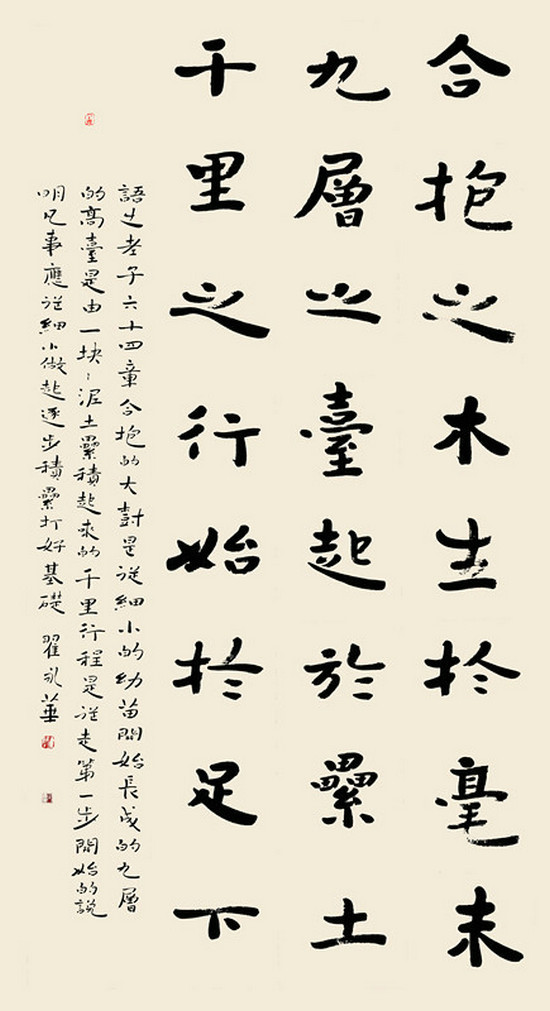 合抱之木生於毫末
九層之臺起於纍土
千里之行始於足下
語出老子六十四章合抱的大樹是從細小的幼苗開始長成的九層
的高臺是由一块々泥土纍積起來的千里行程是從走第一步開始的說
明凡事應從細小做起逐步積纍打好基礎 翟永華